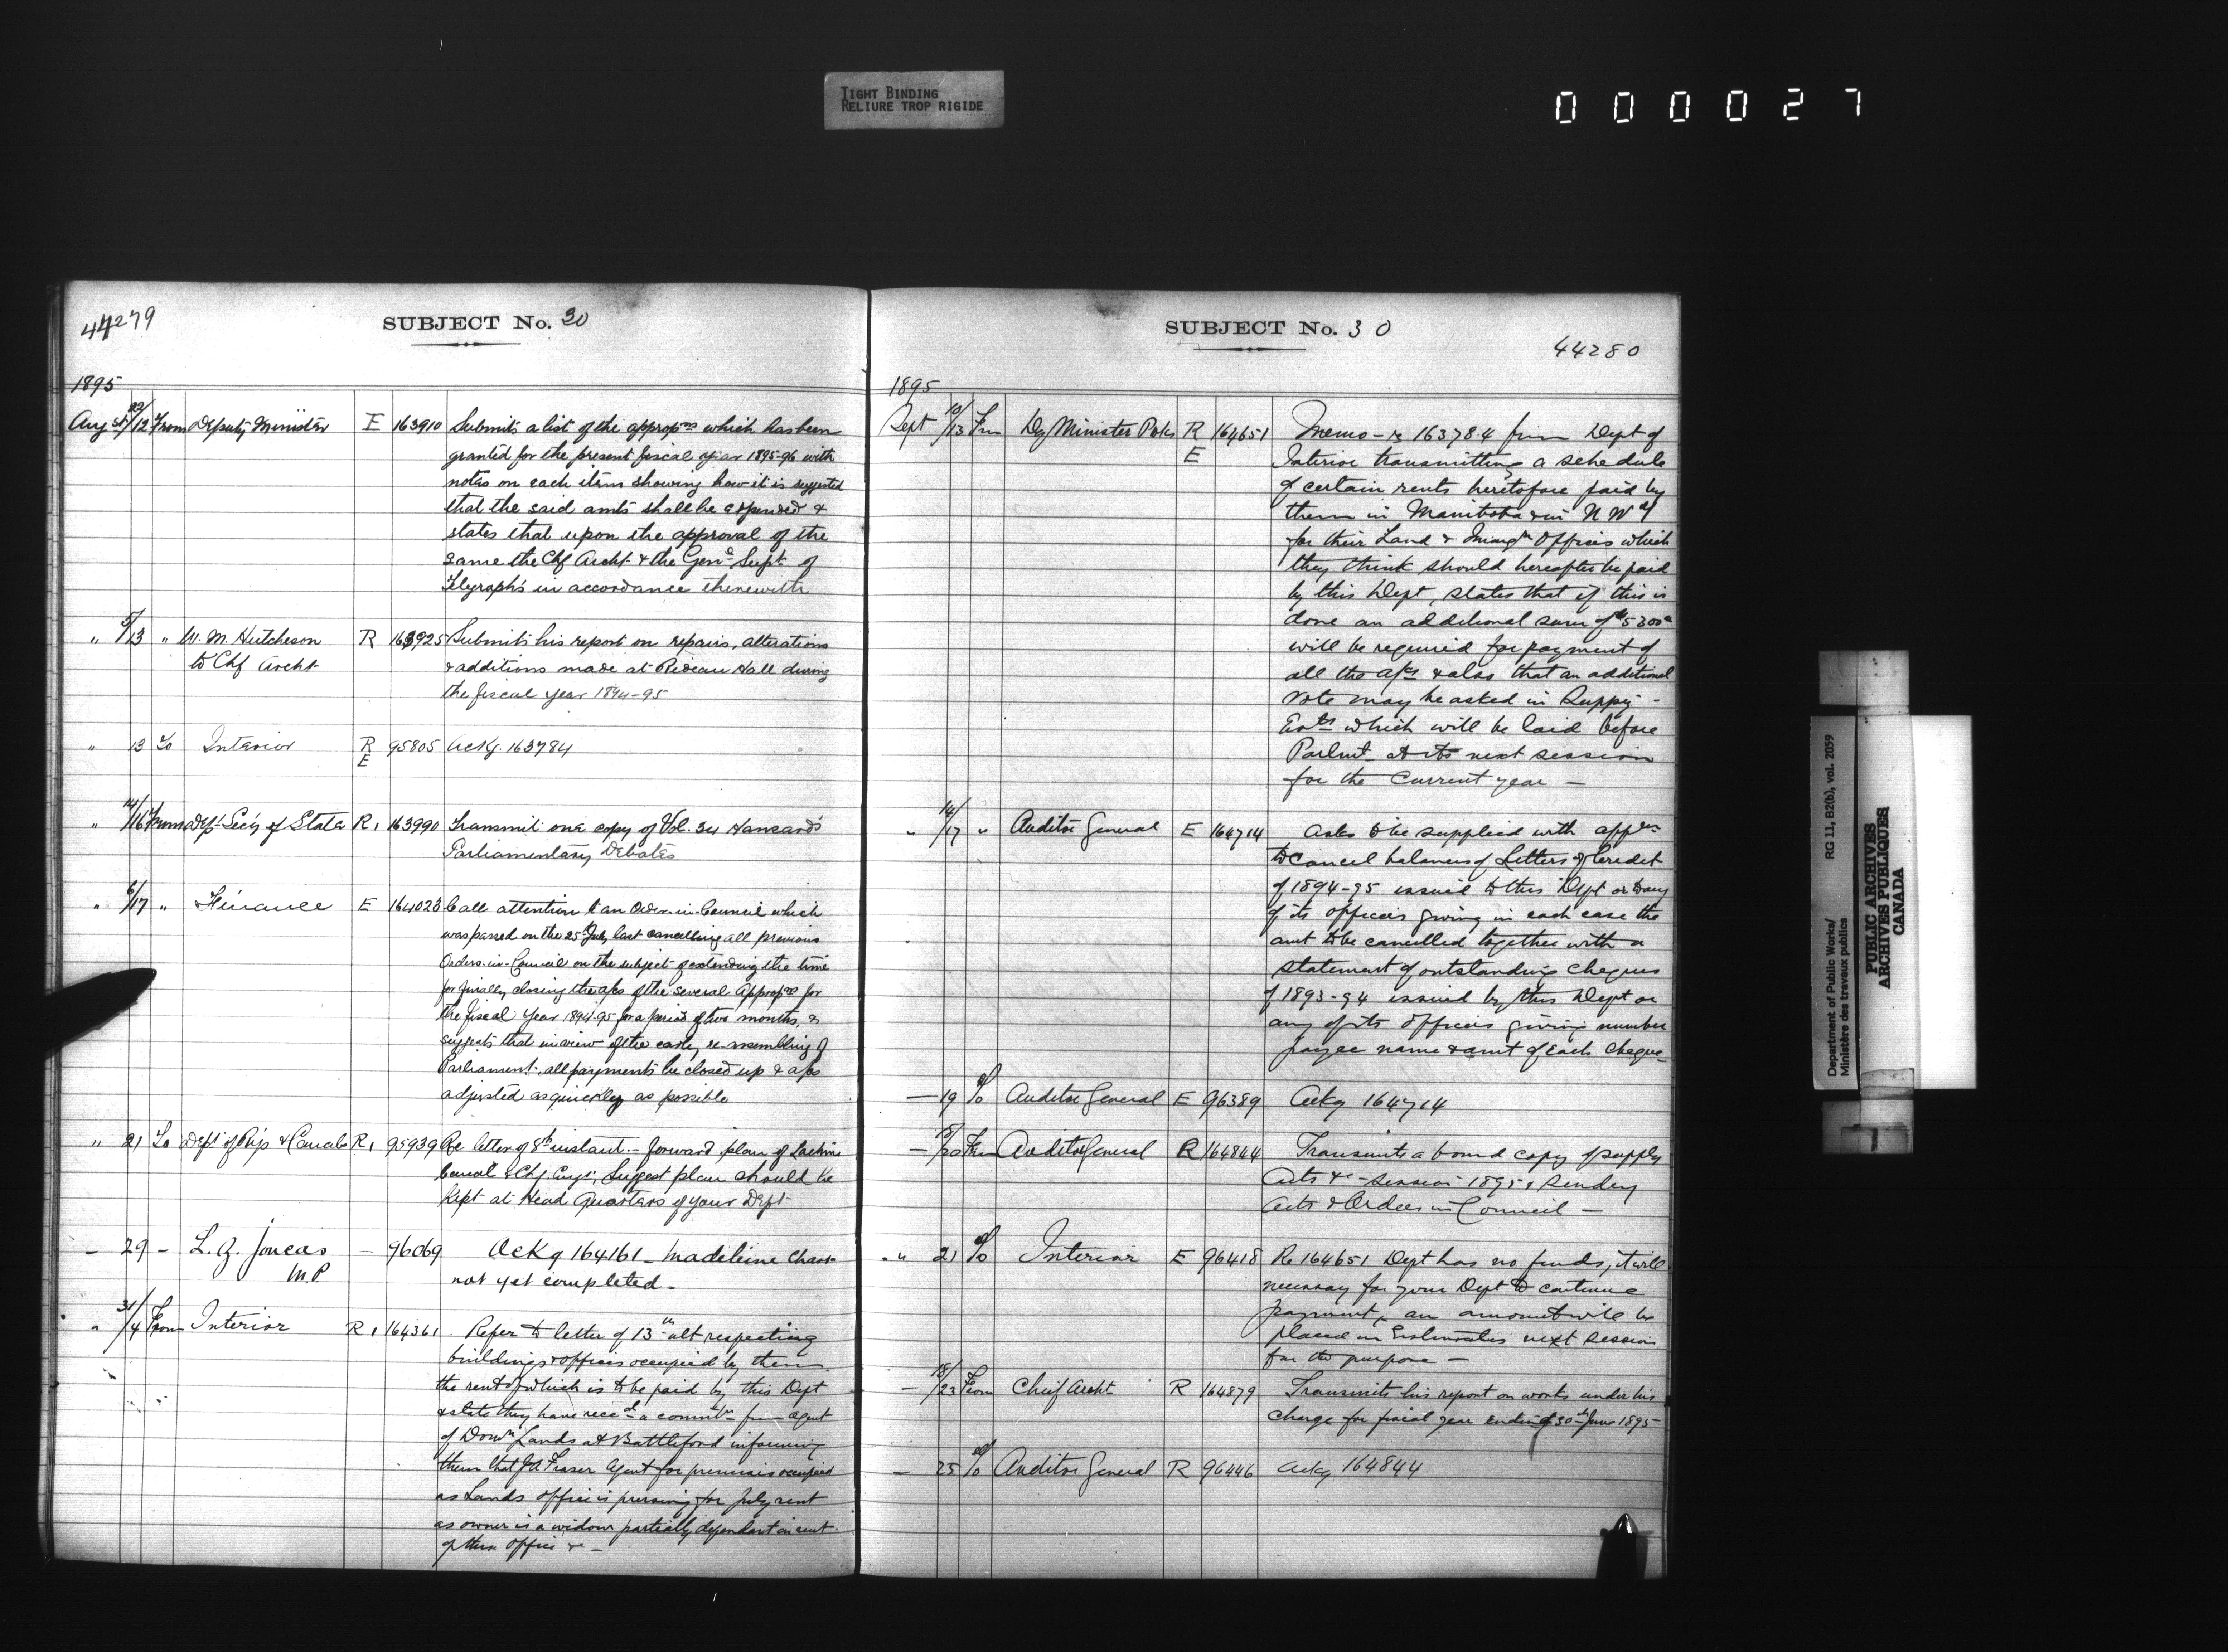 TIGHT BINDING
RELIURE TROP RIGIDE
000027
44279
SUBJECT No. 30
1895
Augst 22/12 From Deputy Minister E 163910 Submits a list of the appropns which has been
granted for the present fiscal year 1895-96 with
notes on each item showing how it is suggested
that the said amts shall be expended &
states that upon the approval of the
same the Chf Archt & the Genl Supt of
Telegraphs in accordance therewith
" 5/13 " W. M. Hutcheson R 163925 Submits his report on repairs, alterations
to Chf Archt & additions made at Rideau Hall during
the fiscal year 1894-95
" 13 To Interior R E 95805 Ackg. 163784
" 14/16 From Dept Secy of State R 1 163990 Transmit one copy of Vol. 34 Hansards
Parliamentary Debates
" 6/17 " Finance E 164023 Call attention to an Order-in-Council which
was passed on the 25 July last cancelling all previous
Orders-in-Council on the subject of extending the time
for finally closing the a/cs of the several Appropns for
the fiscal year 1894-95 for a period of two months, &
suggests that in view of the early re-assembling of
Parliament, all payments be closed up & a/cs
adjusted as quickly as possible
" 21 To Dept of Rys & Canals R 1 95939 Re letter of 8th instant - forward plan of Lachine
Canal & Chf. Engr, Suggest plan should be
kept at Head Quarters of your Dept
- 29 - L. Z. Joncas - 96069 Ackg 164161 - Madeleine
M.P. not yet completed -
" 31/4 From Interior R 1 164361 Refer to letter of 13th ult respecting
buildings & offices occupied by them
the rent of which is to be paid by this Dept
& state they have recd a from agent
of Domn Lands at Battleford informing
them that J A Fraser Agent for premises occupied
as Lands office is pressing for July rent
as owner is a widow partially dependant on rent
of their office &c -
SUBJECT No. 30
44280
1895
Sept 10/13 Frm Dy Minister R E 164651 Memo - re 163784 from Dept of
Interior transmitting a schedule
of certain rents heretofore paid by
them in Manitoba & in N W Ty
for their Land & Immgn Offices which
they think should hereafter be paid
by this Dept, states that if this is
done an additional sum of $5300
will be required for payment of
all the a/cs & also that an additional
vote may be asked in Suppy -
Ests which will be laid before
Parlmt at its next session
for the current year -
" 14/17 " Auditor General E 164714 Asks to be supplied with appns
to cancel balances of Letters of Credit
of 1894-95 issued to this Dept or to any
of its officers giving in each case the
amt to be cancelled together with a
statement of outstanding cheques
of 1893-94 issued by this Dept or
any of its officers giving number
payee name & amt of each cheque -
- 19 To Auditor General E 96389 Ackg 164714
- /20 From Auditor General R 164844 Transmits a bound copy of supply
Acts &c - session 1895 & sundry
Acts & Orders in Council -
" 21 To Interior E 96418 Re 164651 Dept has no funds, it will
necessary for your Dept to continue
payment, an amount will be
placed in Estimates next session
for the purpose -
- 18/23 From Chief Archt R 164879 Transmits his report on works under his
charge for fiscal year ending 30th June 1895 -
- 25 To Auditor General R 96446 Ackg 164844
Department of Public Works/
Ministère des travaux publics
RG 11, B2(b), vol. 2059
PUBLIC ARCHIVES
ARCHIVES PUBLIQUES
CANADA